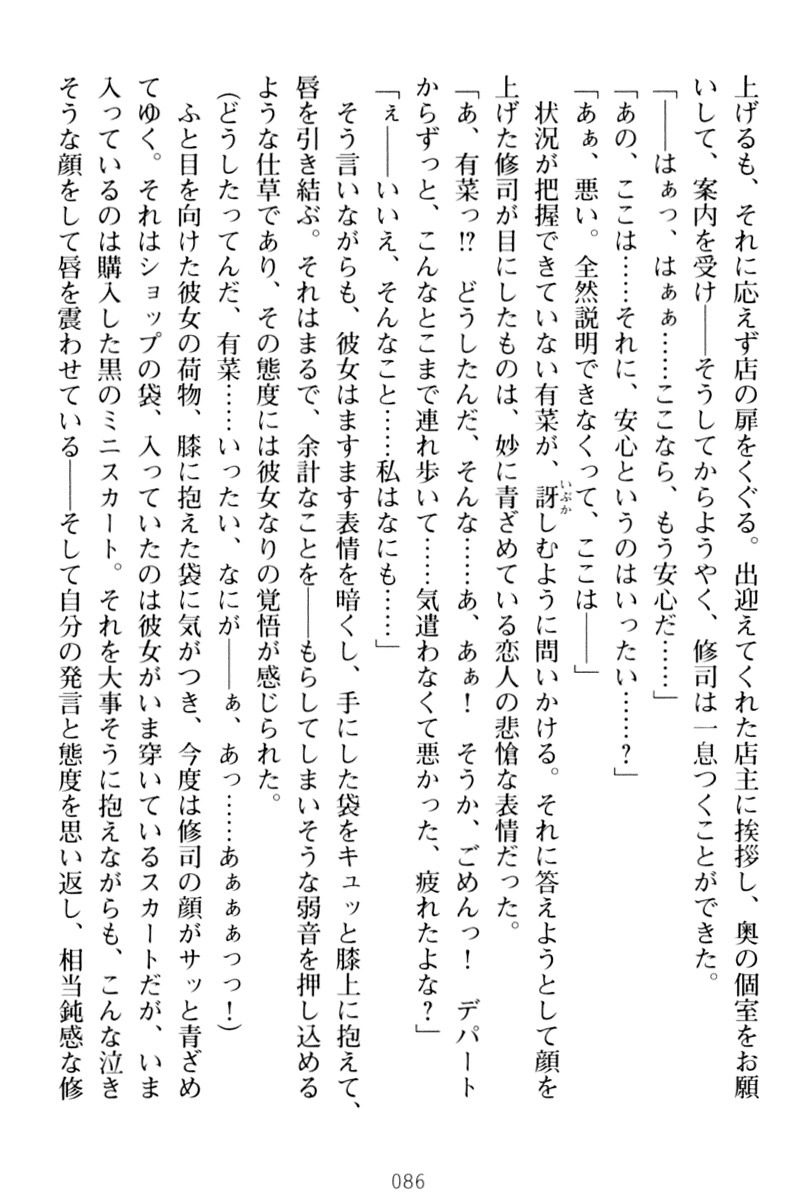 上げるも、それに応えず店の扉をくぐる。出迎えてくれた店主に挨拶し、奥の個室をお願
いして、案内を受け――そうしてからようやく、修司は一息つくことができた。
「――はぁっ、はぁぁ……ここなら、もう安心だ……」
「あの、ここは……それに、安心というのはいったい……？」
「あぁ、悪い。全然説明できなくって、ここは――」
　状況が把握できていない有菜が、訝しむように問いかける。それに答えようとして顔を
いぶか
上げた修司が目にしたものは、妙に青ざめている恋人の悲愴な表情だった。
「あ、有菜っ!?　どうしたんだ、そんな……あ、あぁ！　そうか、ごめんっ！　デパート
からずっと、こんなとこまで連れ歩いて……気遣わなくて悪かった、疲れたよな？」
「ぇ――いいえ、そんなこと……私はなにも……」
　そう言いながらも、彼女はますます表情を暗くし、手にした袋をキュッと膝上に抱えて、
唇を引き結ぶ。それはまるで、余計なことを――もらしてしまいそうな弱音を押し込める
ような仕草であり、その態度には彼女なりの覚悟が感じられた。
（どうしたってんだ、有菜……いったい、なにが――ぁ、あっ……あぁぁぁっっ！）
　ふと目を向けた彼女の荷物、膝に抱えた袋に気がつき、今度は修司の顔がサッと青ざめ
てゆく。それはショップの袋、入っていたのは彼女がいま穿いているスカートだが、いま
入っているのは購入した黒のミニスカート。それを大事そうに抱えながらも、こんな泣き
そうな顔をして唇を震わせている――そして自分の発言と態度を思い返し、相当鈍感な修
086